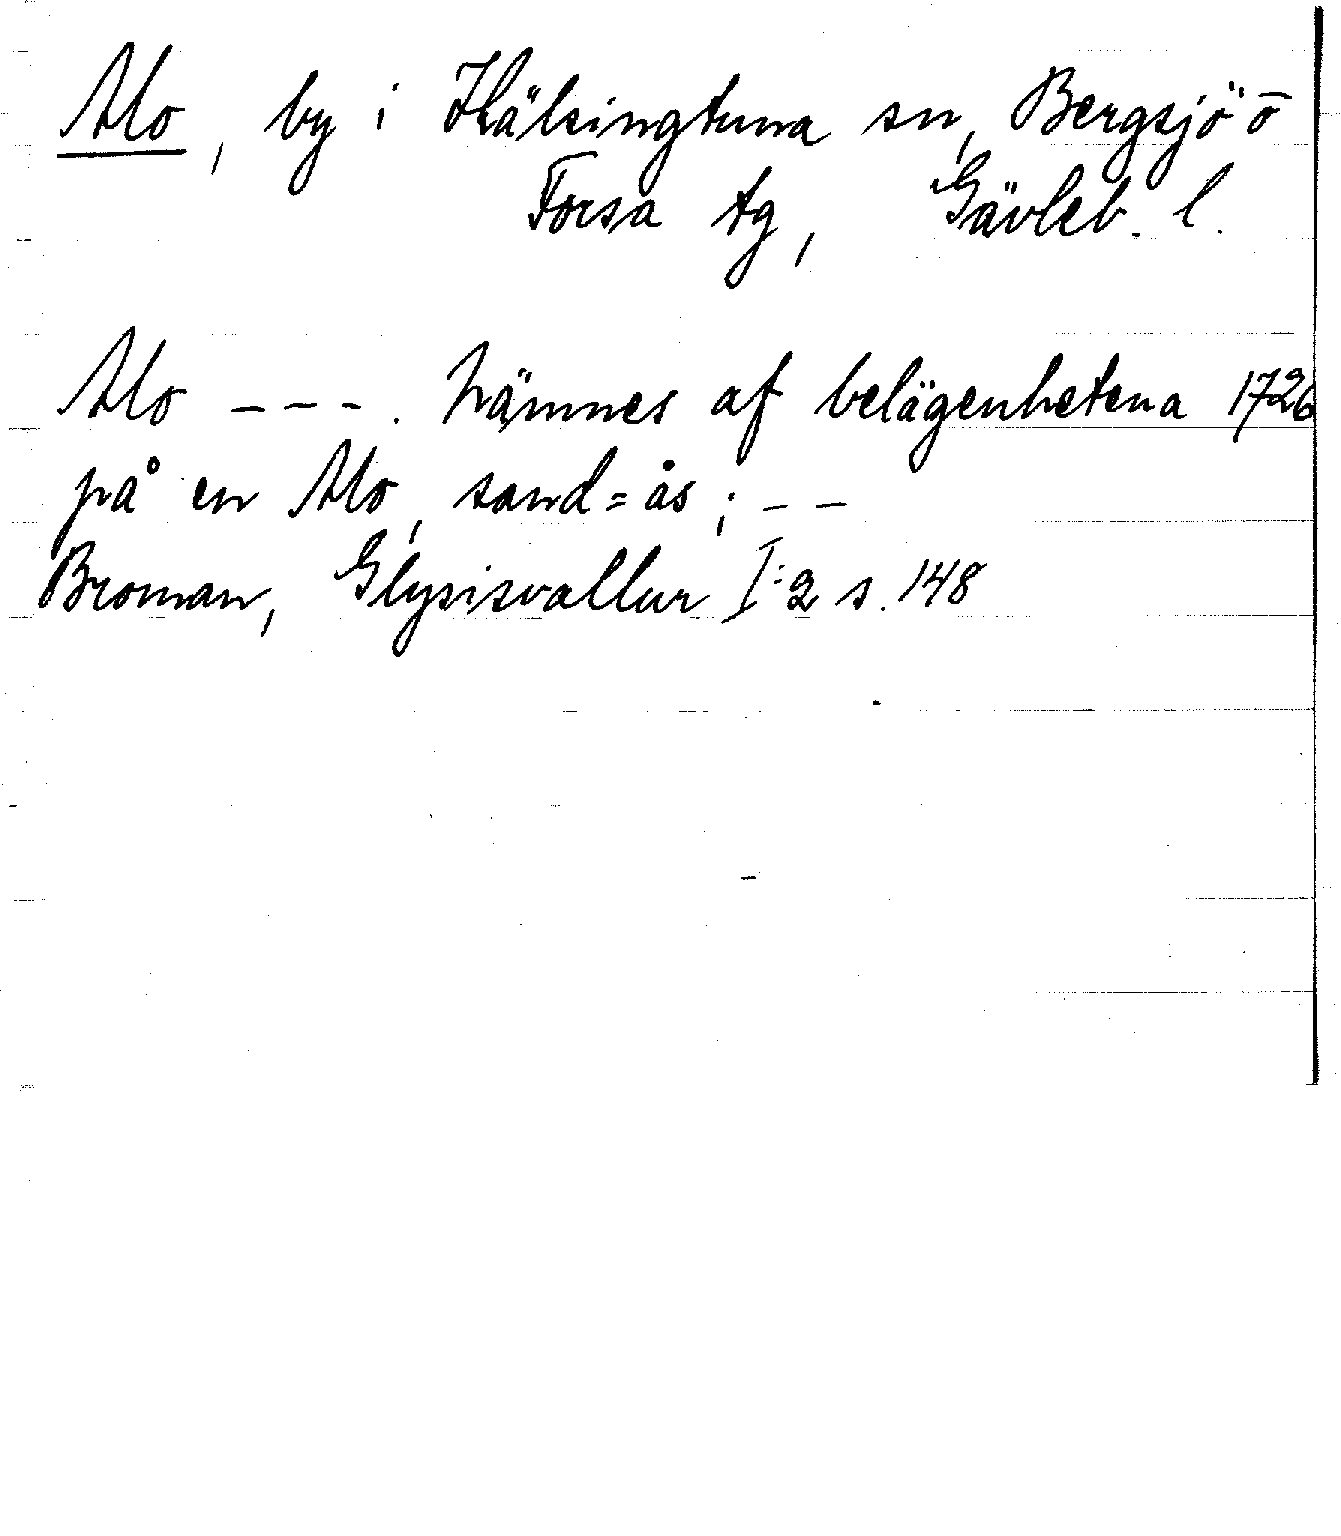 Mo, by i Hälsingtuna sn, Bergsjö o
Forsa tg, Gävleb. l.
Mo ---. Nämnes af belägenhetena 1726
på en Mo, sand=ås; --
Broman, Glysisvallur I:2 s. 148